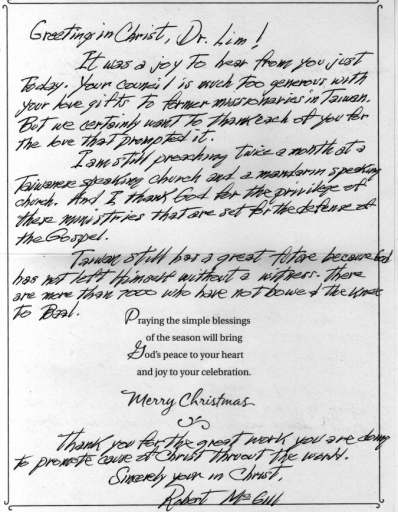 Greetings in Christ, Dr. Lim!
It was a joy to hear from you just
today. Your council is much too generous with
your love gifts to former missionaries in Taiwan.
But we certainly want to thank each of you for
the love that prompted it.
I am still preaching twice a month at a
Taiwanese speaking church and a mandarin speaking
church. And I thank God for the privilege of
these ministries that are set for the defense of
the Gospel.
Taiwan still has a great future because God
has not left Himself without a witness. There
are more than 7000 who have not bowed the knee
to Baal.
Praying the simple blessings
of the season will bring
God's peace to your heart
and joy to your celebration.
Merry Christmas
Thank you for the great work you are doing
to promote cause of Christ thruout the world.
Sincerely your in Christ,
Robert McGill